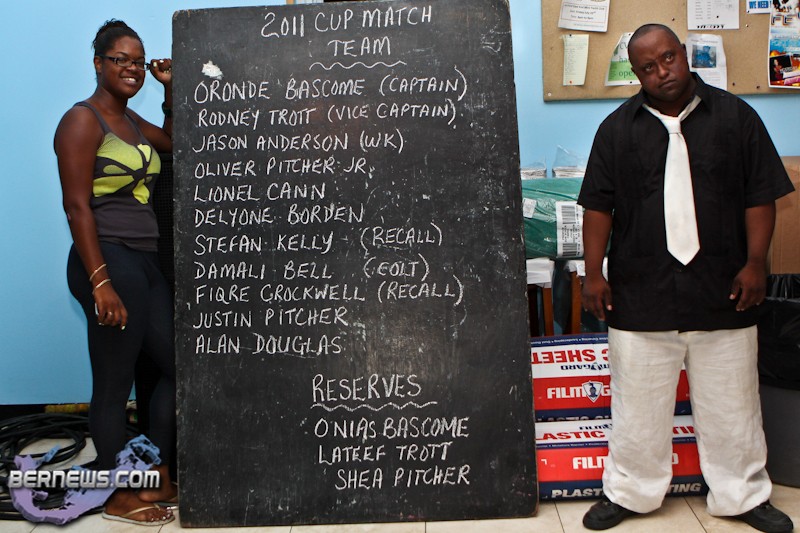 2011 CUP MATCH
TEAM
ORONDE BASCOME (CAPTAIN)
RODNEY TROTT (VICE CAPTAIN)
JASON ANDERSON (WK)
OLIVER PITCHER JR.
LIONEL CANN
DELYONE BORDEN
STEFAN KELLY (RECALL)
DAMALI BELL (COLT)
FIQRE CROCKWELL (RECALL)
JUSTIN PITCHER
ALAN DOUGLAS
RESERVES
ONIAS BASCOME
LATEEF TROTT
SHEA PITCHER
WE NEED
C SHEET
FILM GARD
PLASTIC SHEETING
BERNEWS.COM